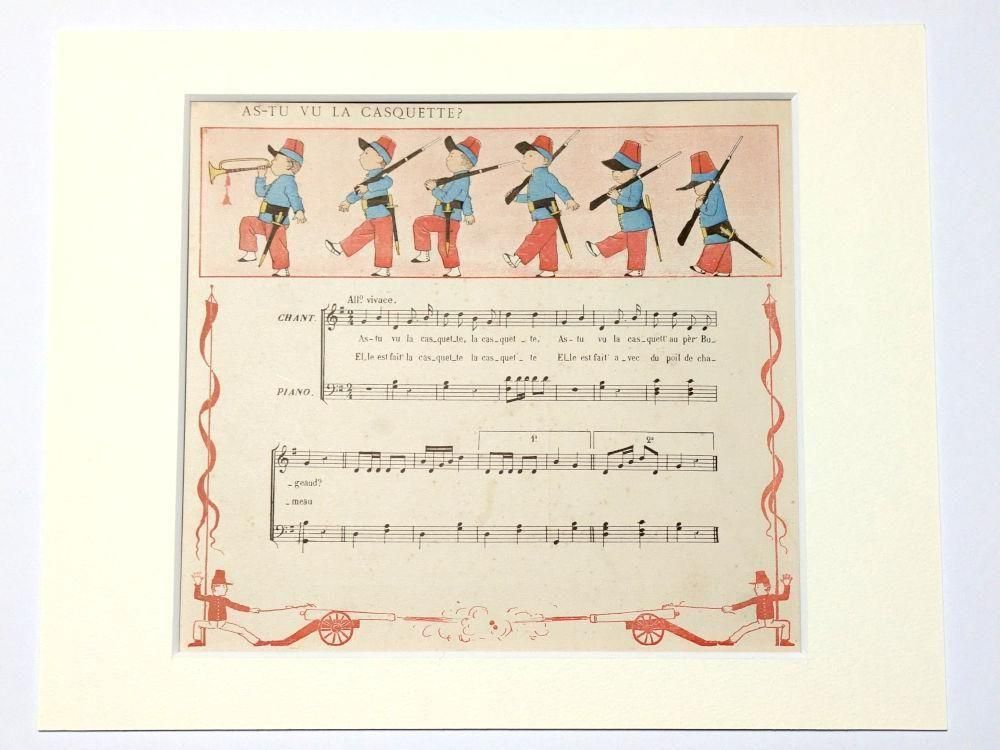 AS-TU VU LA CASQUETTE?
All? vivace.
CHANT.
As_tu vu la cas_quet_te, la cas_quet_te, As_tu vu la cas_quett' au pèr' Bu_
El_le est fait' la cas_quet_te la cas_quet_te El_le est fait' a_vec du poil de cha_
PIANO.
1º
2º
_geaud?
_meau